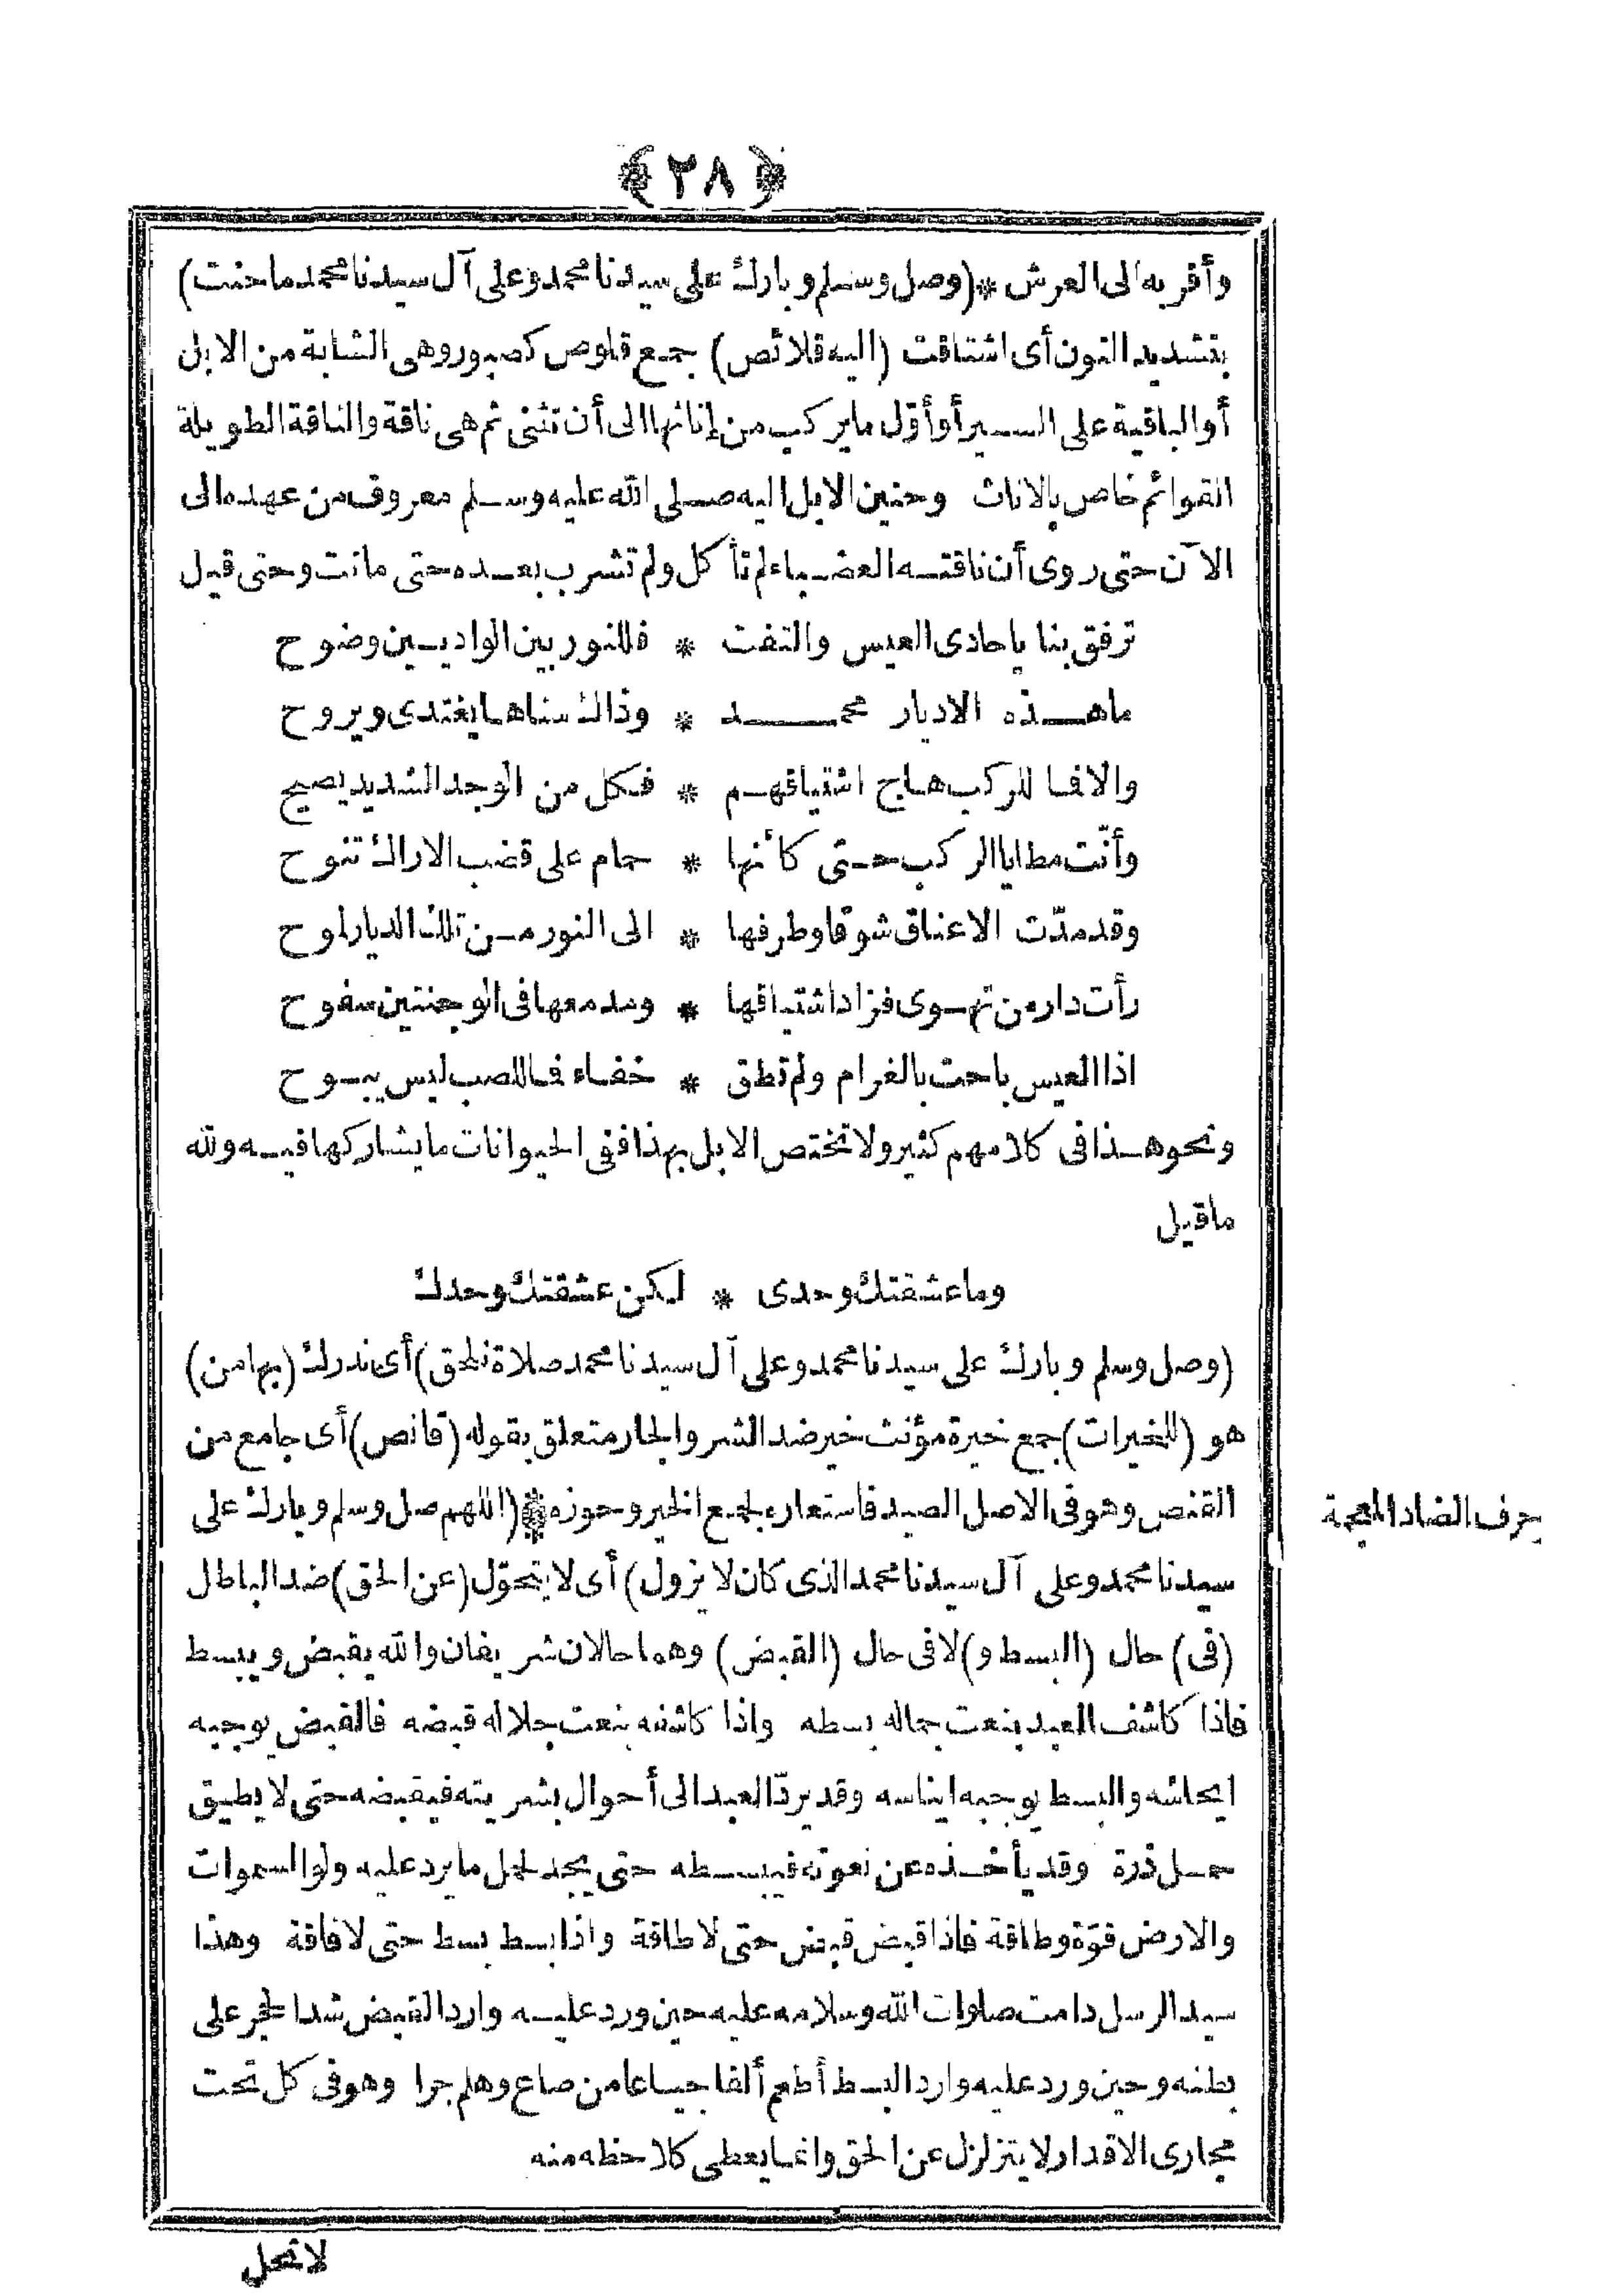 ﴿٢٨﴾
وأقربه الى العرش * (وصل وسلم وبارك على سيدنا محمد وعلى آل سيدنا محمد ما حنت)
بتشديد النون أى اشتاقت (اليه قلائص) جمع قلوص كصبور وهى الشابة من الابل
أو الباقية على السير أو أوّل ما يركب من إناثها الى أن تثنى ثم هى ناقة والناقة الطويلة
القوائم خاص بالاناث وحنين الابل اليه صلى الله عليه وسلم معروف من عهده الى
الآن حتى روى أن ناقته العضباء لم تأكل ولم تشرب بعده حتى ماتت وحتى قيل
ترفق بنا يا حادى العيس والتفت * فللنور بين الواديين وضوح
ما هذه الا ديار محمد * وذاك سناها يغتدى ويروح
والا فما للركب هاج اشتياقهم * فكل من الوجد الشديد يصيح
وأنّت مطايا الركب حتى كأنها * حمام على قضب الاراك تنوح
وقد مدّت الاعناق شوقا وطرفها * الى النور من تلك الديار لموح
رأت دار من تهوى فزاد اشتياقها * ومدمعها فى الوجنتين سفوح
اذا العيس باحت بالغرام ولم تطق * خفاء فما للصب ليس يبوح
ونحو هذا فى كلامهم كثير ولا تختص الابل بهذا ففى الحيوانات ما يشاركها فيه ولله
ما قيل
وما عشقتك وحدى * لكن عشقتك وحدك
(وصل وسلم وبارك على سيدنا محمد وعلى آل سيدنا محمد صلاة نلحق) أى ندرك (بها من)
هو (للخيرات) جمع خيرة مؤنث خير ضد الشر والجار متعلق بقوله (قانص) أى جامع من
القنص وهو فى الاصل الصيد فاستعاره لجمع الخير وحوزه * (اللهم صل وسلم وبارك على
حرف الضاد المعجمة
سيدنا محمد وعلى آل سيدنا محمد الذى كان لا يزول) أى لا يتحوّل (عن الحق) ضد الباطل
(فى) حال (البسط و) لا فى حال (القبض) وهما حالان شريفان والله يقبض ويبسط
فاذا كاشف العبد بنعت جماله بسطه واذا كاشفه بنعت جلاله قبضه فالقبض يوجبه
ايحاشه والبسط يوجبه ايناسه وقد يردّ العبد الى أحوال بشريته فيقبضه حتى لا يطيق
حمل ذرة وقد يأخذه عن نعوته فيبسطه حتى يجد لحمل ما يرد عليه ولو السموات
والارض قوّة وطاقة فاذا قبض قبض حتى لا طاقة واذا بسط بسط حتى لا فاقة وهذا
سيد الرسل دامت صلوات الله وسلامه عليه حين ورد عليه وارد القبض شد الحجر على
بطنه وحين ورد عليه وارد البسط أطعم ألفا جياعا من صاع وهلم جرا وهو فى كل تحت
مجارى الاقدار لا يتزلزل عن الحق وانما يعطى كلا حظه منه
لا تحل